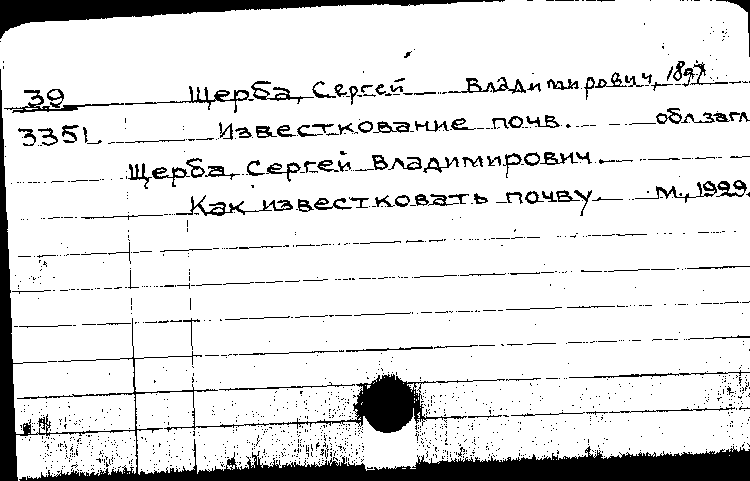 39 Щерба, Сергей Владимирович, 1897
335L Известкование почв. обл.загл
Щерба, Сергей Владимирович.
Как известковать почву. М., 1929.